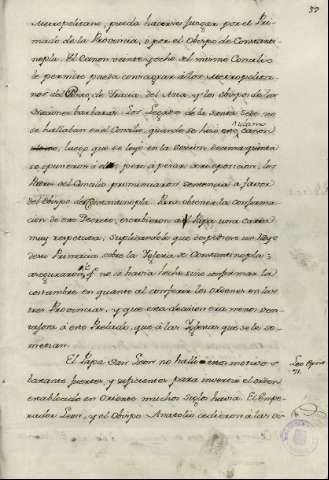 39
Metropolitano, pueda hacerse juzgar por el Pri-
mado de la Provincia, o por el Obispo de Constanti-
nopla. El Canon veinte y ocho del mismo Concilio
le permite pueda consagrar á los Metropolita-
nos del Ponto, de Tracia, del Asia, y los Obispos de las
Naciones barbaras. Los Legados de la Santa Sede no
se hallaban en el Concilio, quando se hizo este canon
ultimo
luego que se leyó en la sesion decimaquinta
se opusieron á el; pero á pesar de su oposicion, los
Padres del Concilio pronunciaron sentencia á favor
del Obispo de Constantinopla. Para obtener la confirma-
cion de este Decreto, escribieron al Papa una carta
muy respetuosa, suplicandole que
su Primacia sobre la Yglesia de Constantinopla;
asegurando q.e no se havia hecho sino confirmar la
costumbre en quanto al conferir los ordenes en las
tres Provincias, y que esta decision era menos ven-
tajosa á este Prelado, que á las Yglesias que se le so-
metian.
El Papa San Leon no halló estos motivos
bastante fuertes, y suficientes para invertir el orden
establecido en Oriente muchos siglos havia. El Empe-
rador Leon, y el Obispo Anatolio cedieron á las